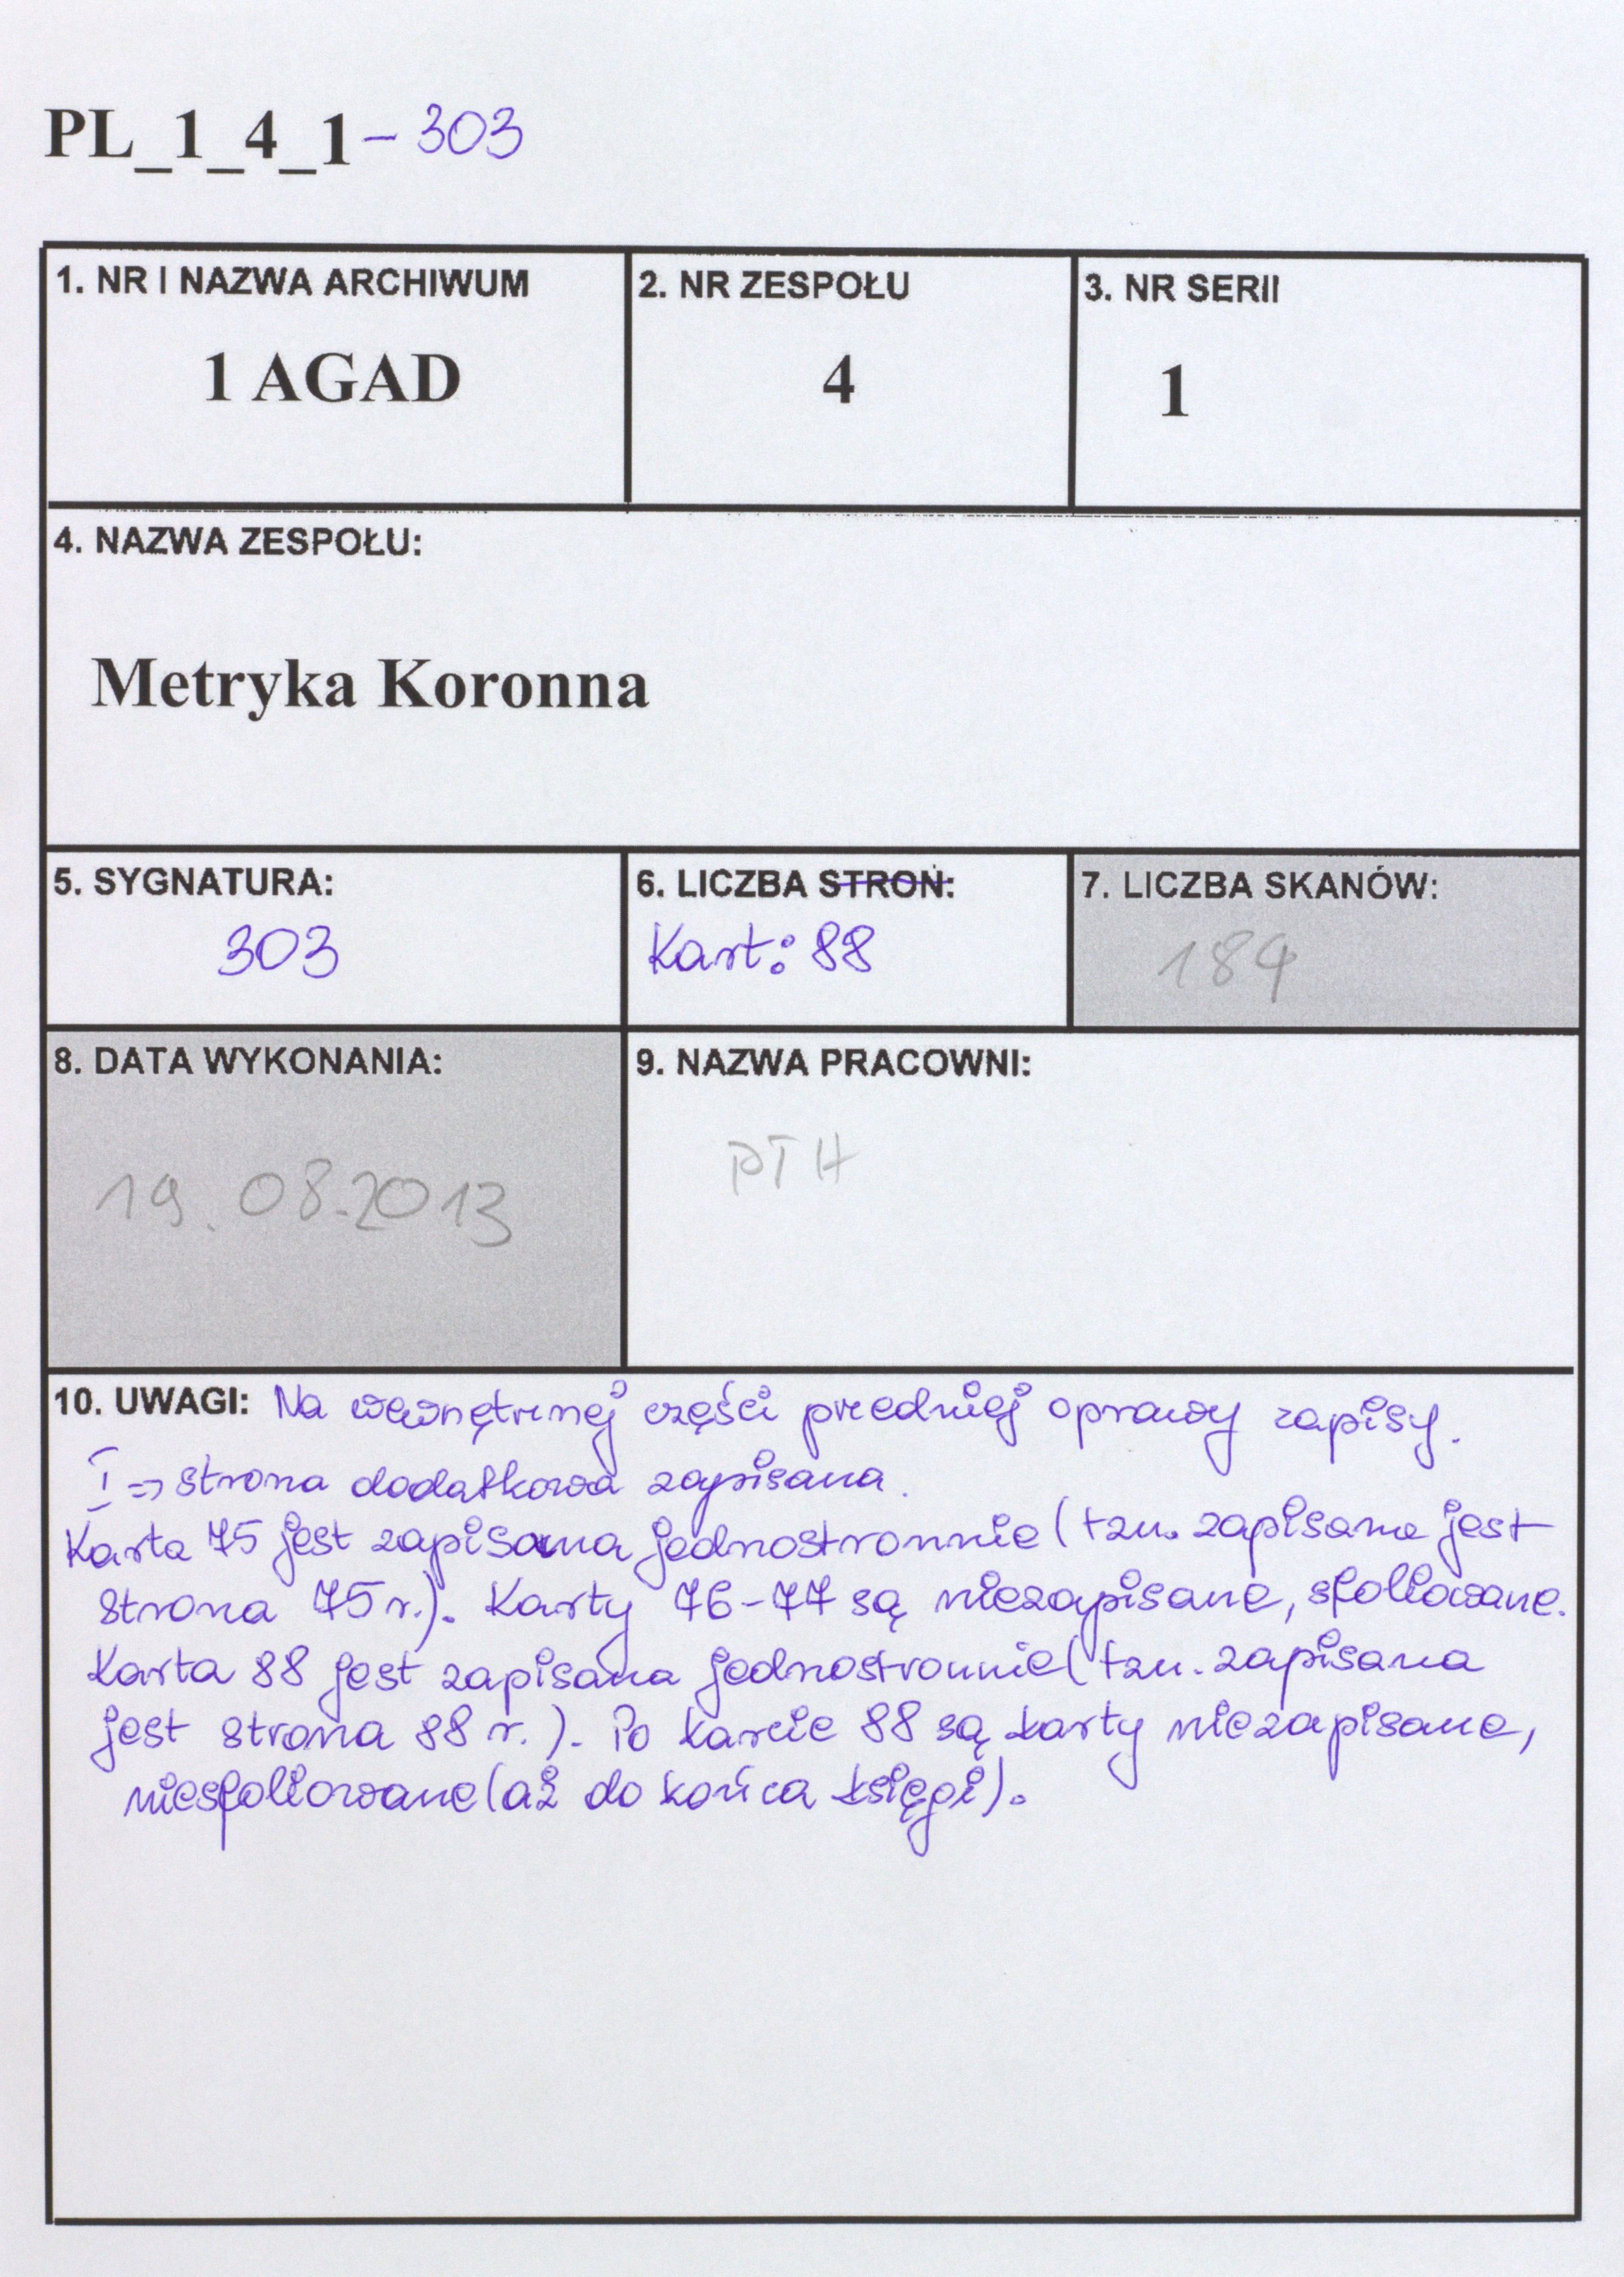 PL_1_4_1 - 303
1. NR I NAZWA ARCHIWUM
1 AGAD
2. NR ZESPOŁU
4
3. NR SERII
1
4. NAZWA ZESPOŁU:
Metryka Koronna
5. SYGNATURA:
303
6. LICZBA STRON:
Kart: 88
7. LICZBA SKANÓW:
184
8. DATA WYKONANIA:
19.08.2013
9. NAZWA PRACOWNI:
PTH
10. UWAGI: Na wewnętrznej części przedniej oprawy zapisy.
I => strona dodatkowa zapisana.
Karta 75 jest zapisana jednostronnie (tzn. zapisana jest
strona 75 r.). Karty 76-77 są niezapisane, sfoliowane.
Karta 88 jest zapisana jednostronnie (tzn. zapisana
jest strona 88 r.). Po karcie 88 są karty niezapisane,
niesfoliowane (aż do końca księgi).